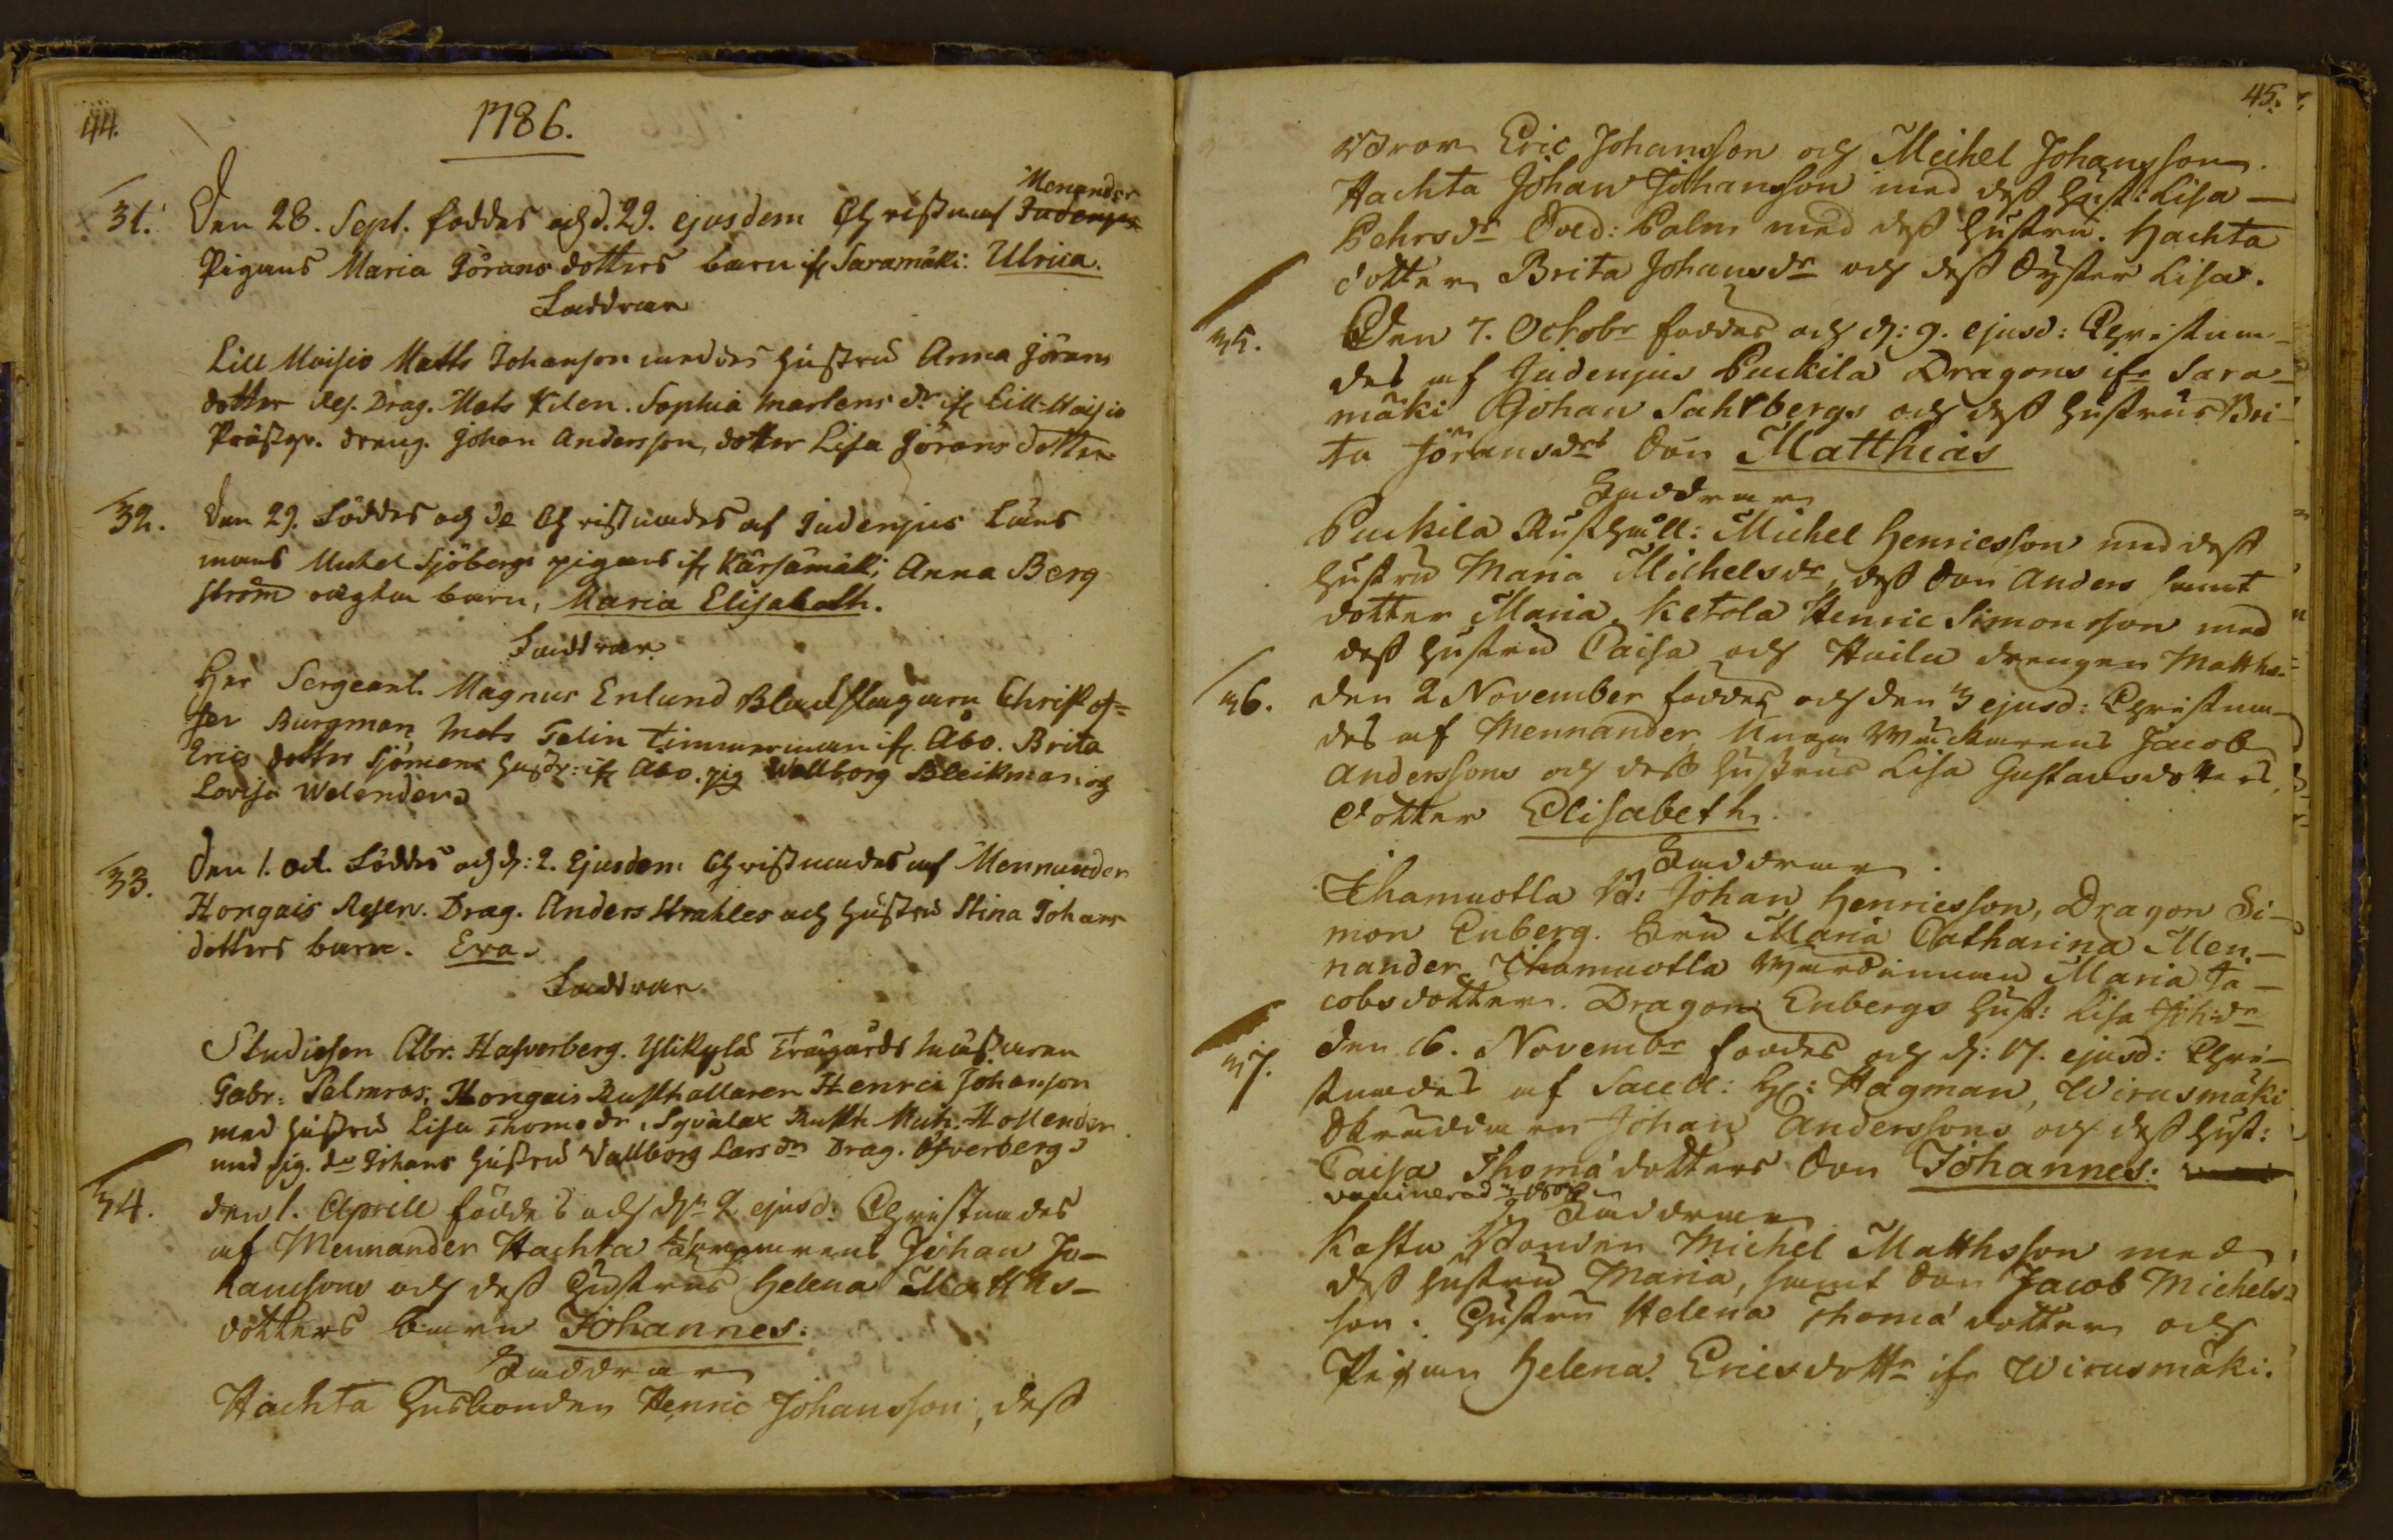 44.
1786.
Menander
31. Den 28. Sept. föddes och d. 29. ejusdem Christnad af Judenjus
Pigans Maria Görans dotters barn ifr Saramäki: Ulrica.
Faddrar
Lill Moisio Matts Johanson med des hustru Anna Görans
dotter Res. Drag. Mats Kilen. Sophia Mårtens dr ifr Lill-Moisio
Prästgr. dreng. Johan Andersson, dotter Lisa Görans dotter
32. Den 29. Föddes och de Christnades af Judenjus Läns
mans Michel Sjöbergs pigans ifr Kärsämäki Anna Berg
ström oägta barn, Maria Elisabeth.
Faddrar
Her Sergeant. Magnus Enlund Bleckslagaren Christof=
fer Burgman Mats Telin Timmerman ifr. Åbo. Brita
Erics dotter Sjömans hustr: ifr Åbo. pig Wallborg Bleikman och
Lovisa Welender
33. Den 1. oct. Föddes och d: 2. Ejusdem Christnades af Mennander
Hongais Reserv. Drag. Anders Strahles och hustru Stina Johans
dotters barn. Eva.
Faddrar
Studiosen Abr. Hasverberg. Ylikylä Trägårds mästaren
Gabr. Palmros, Hongais Rusthållaren Henric Johanson
med hustru Lisa Thomædr, Syvälax Rusth. Mich. Hollender
med pig. dr Johans hustru Vallborg Lars dr Drag. Öfverberg
34. den 1. Aprill föddes och dn 2 ejusd: Christnades
af Mennander Hachta Johan Jo-
hansons och dess hustrus Helena Matths-
dotters barn Johannes:
Faddrar
Hachta Husbonden Henric Johansson, dess
45.
Eric Johansson och Michel Johansson.
Hachta Johan Johansson med dess Hust: Lisa
Pehrsdr Sold: Palm med dess hustru. Hachta
dotter Brita Johansdr och dess Syster Lisa.
35. Den 7. Octobr föddes och d: 9. ejusd: Christna-
des af Judenjus Puckila Dragons ifr Sara-
mäki Johan Sahlbergs och dess hustrus Bri-
ta Jöransdrs Son Matthias
Faddrar
Puckila Rusthåll: Michel Henricsson med dess
hustru Maria Michelsdr, dess Son Anders samt
dotter Maria. Ketola Henric Simonsson med
dess hustru Caisa och Huila drengen Matths
36. den 2 November föddes och den 3 ejusd: Christna-
des af Mennander Jacob
Anderssons och dess hustrus Lisa Gustavsdotters
dotter Elisabeth.
Faddrar
Thamuotla Johan Henricsson, Dragon Si-
mon Enberg. Fru Maria Catharina Men-
nander Thamuotla Wärdinnan Maria Ja-
cobsdotter. Dragon Enbergs hust: Lisa
37. den 16. Novembr föddes och d: 17. ejusd: Chri-
stnades af Sacell: Hr: Hagman, Wirusmäki
Skräddaren Johan Anderssons och dess hust:
Caisa Thomædotters Son Johannes:
Faddrar
Kastu Bonden Michel Matthsson med
dess hustru Maria, samt Son Jacob Michels-
son. Hustru Helena Thomædotter och
Pigan Helena Ericsdottr ifr Wirusmäki.